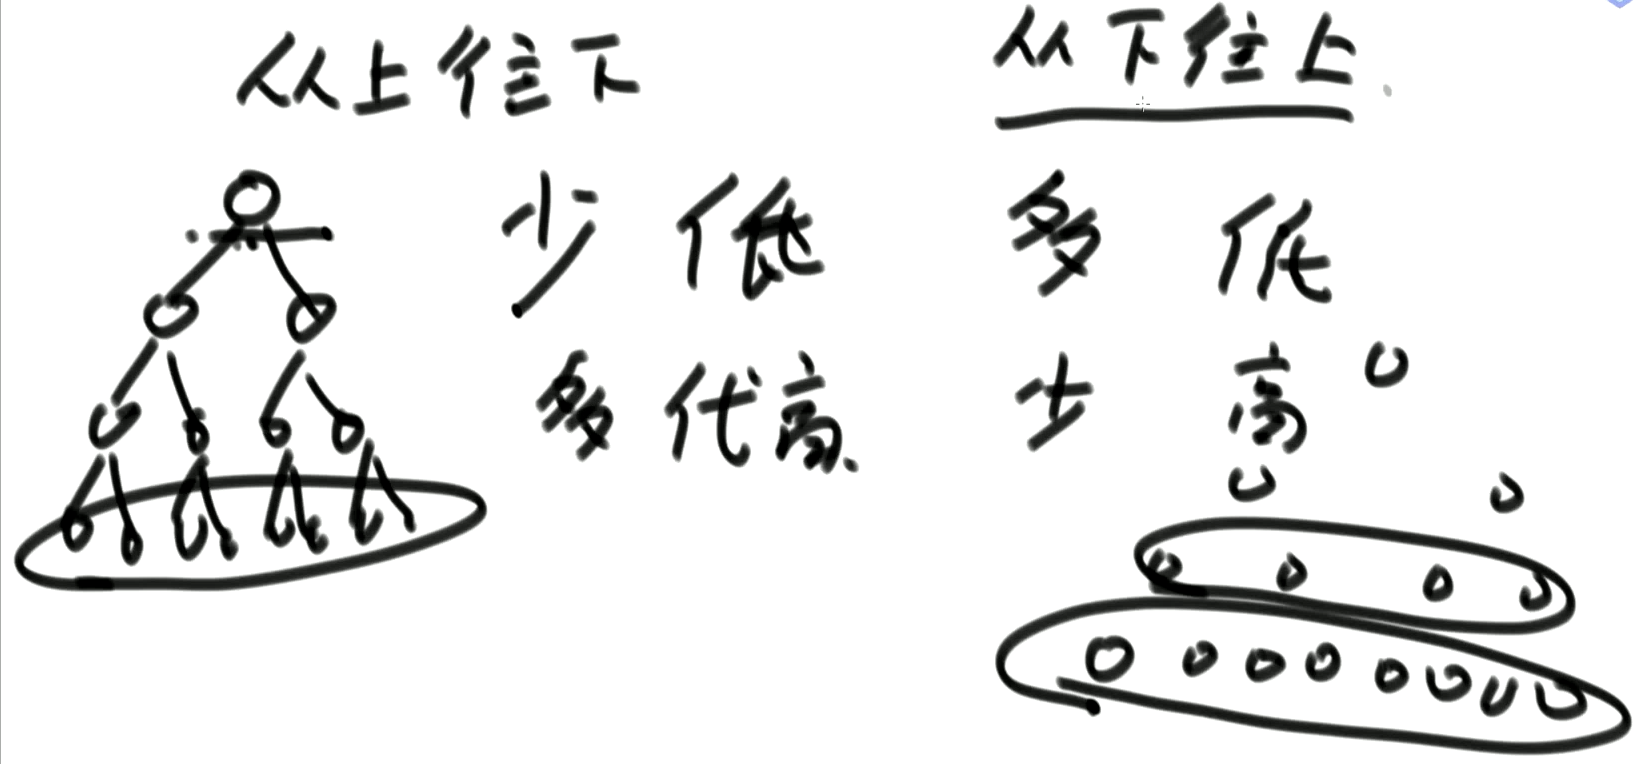 从上往下
少 低
多 代高
从下往上
多 低
少 高